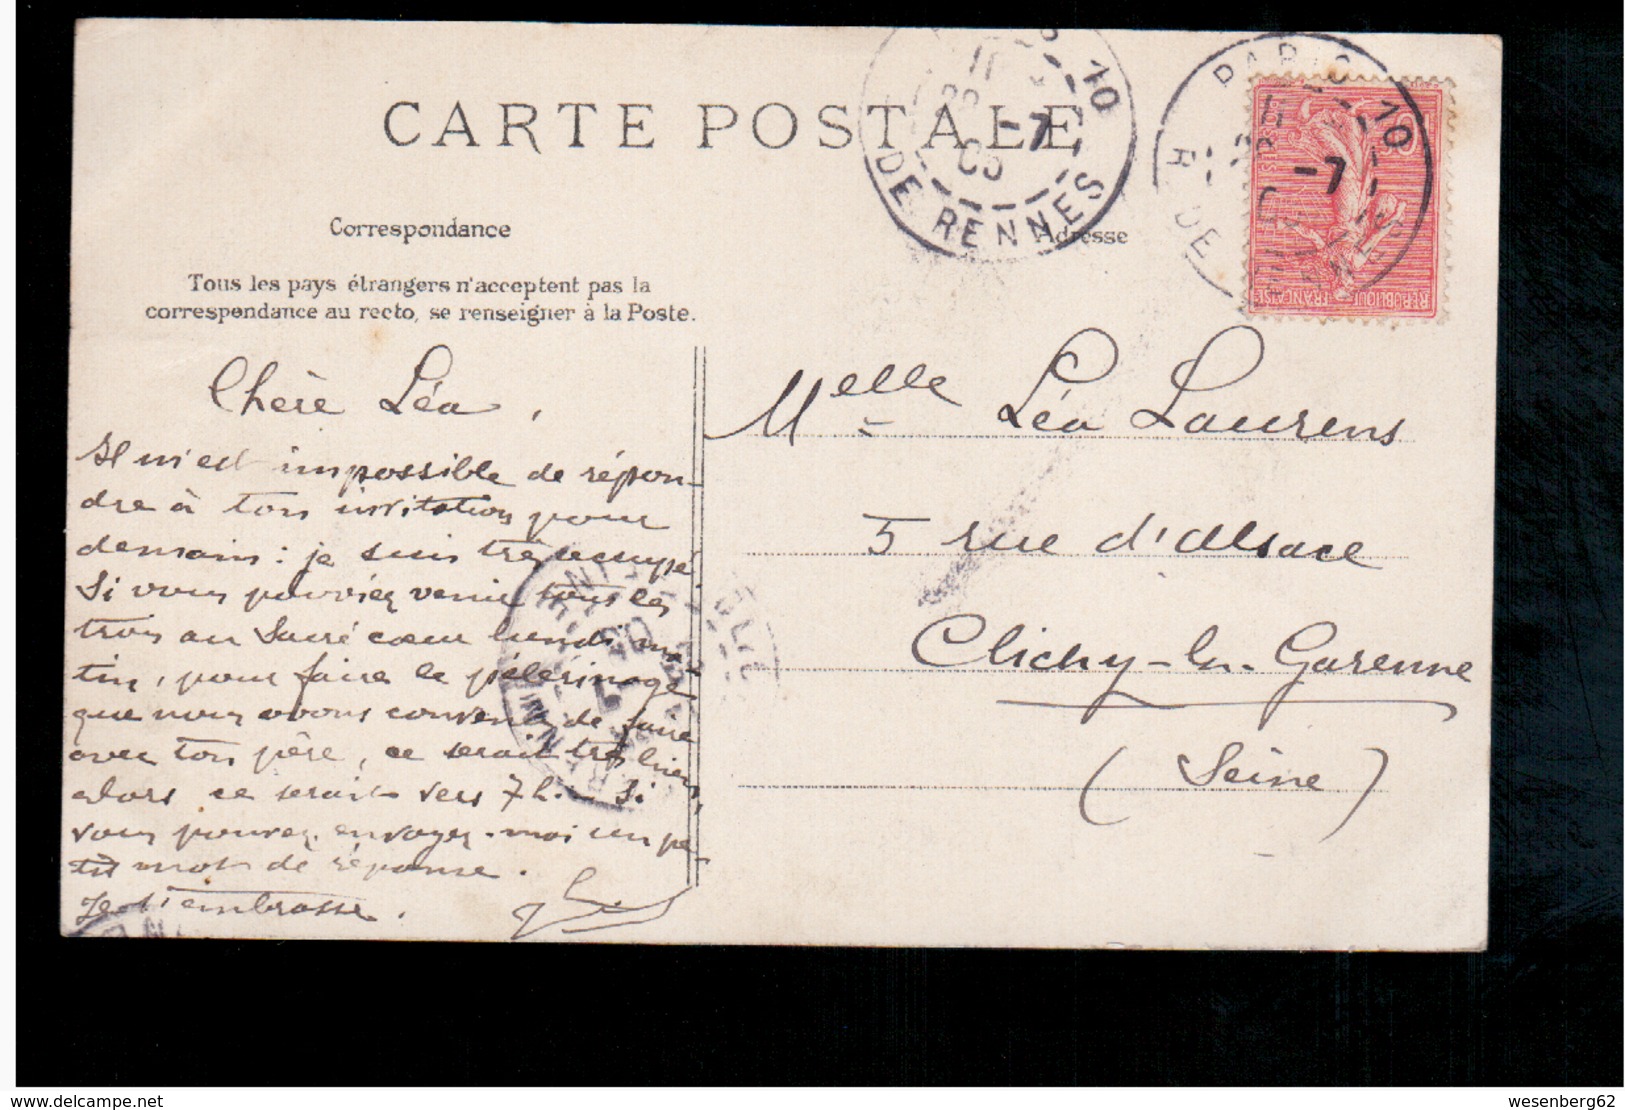 CARTE POSTALE
Correspondance
Adresse
Tous les pays étrangers n'acceptent pas la
correspondance au recto, se renseigner à la Poste.
PARIS 10
R DE RENNES
11
-7
05
DE RENNES
10
-7
REPUBLIQUE FRANÇAISE
Chère Léa,
Il m'est impossible de répon-
dre à ton invitation pour
demain : je suis très occupé.
Si vous pouviez venir tous les
trois au Sacré cœur lundi ma-
tin, pour faire le pélérinage
que nous avons convenu de faire
avec ton père, ce serait très bien,
alors ce serait vers 7h. - Si
vous pouvez, envoyez-moi un pe-
tit mot de réponse.
Je t'embrasse.
Melle Léa Laurens
5 rue d'Alsace
Clichy-la-Garenne
(Seine)
delcampe.net
wesenberg62